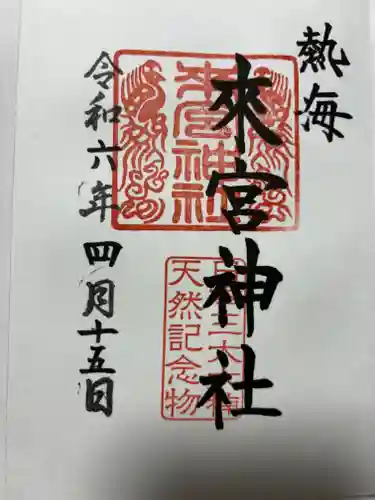 熱海
來宮神社
令和六年 四月十五日
來宮神社
天然記念物